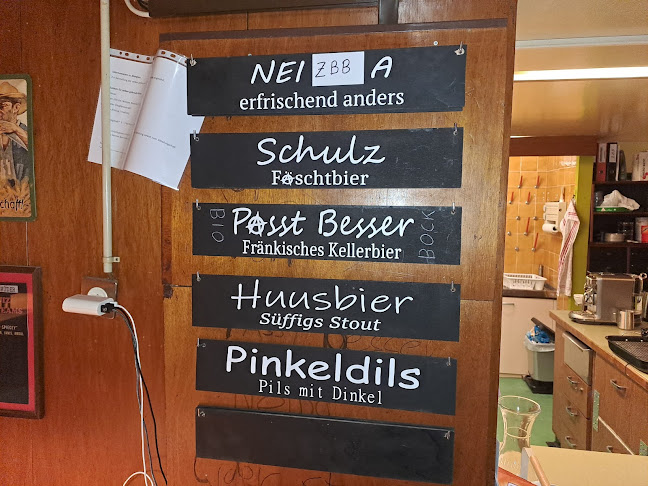 NEI ZBB A
erfrischend anders
Schulz
Fäschtbier
BIO Passt Besser BOCK
Fränkisches Kellerbier
Huusbier
Süffigs Stout
Pinkeldils
Pils mit Dinkel